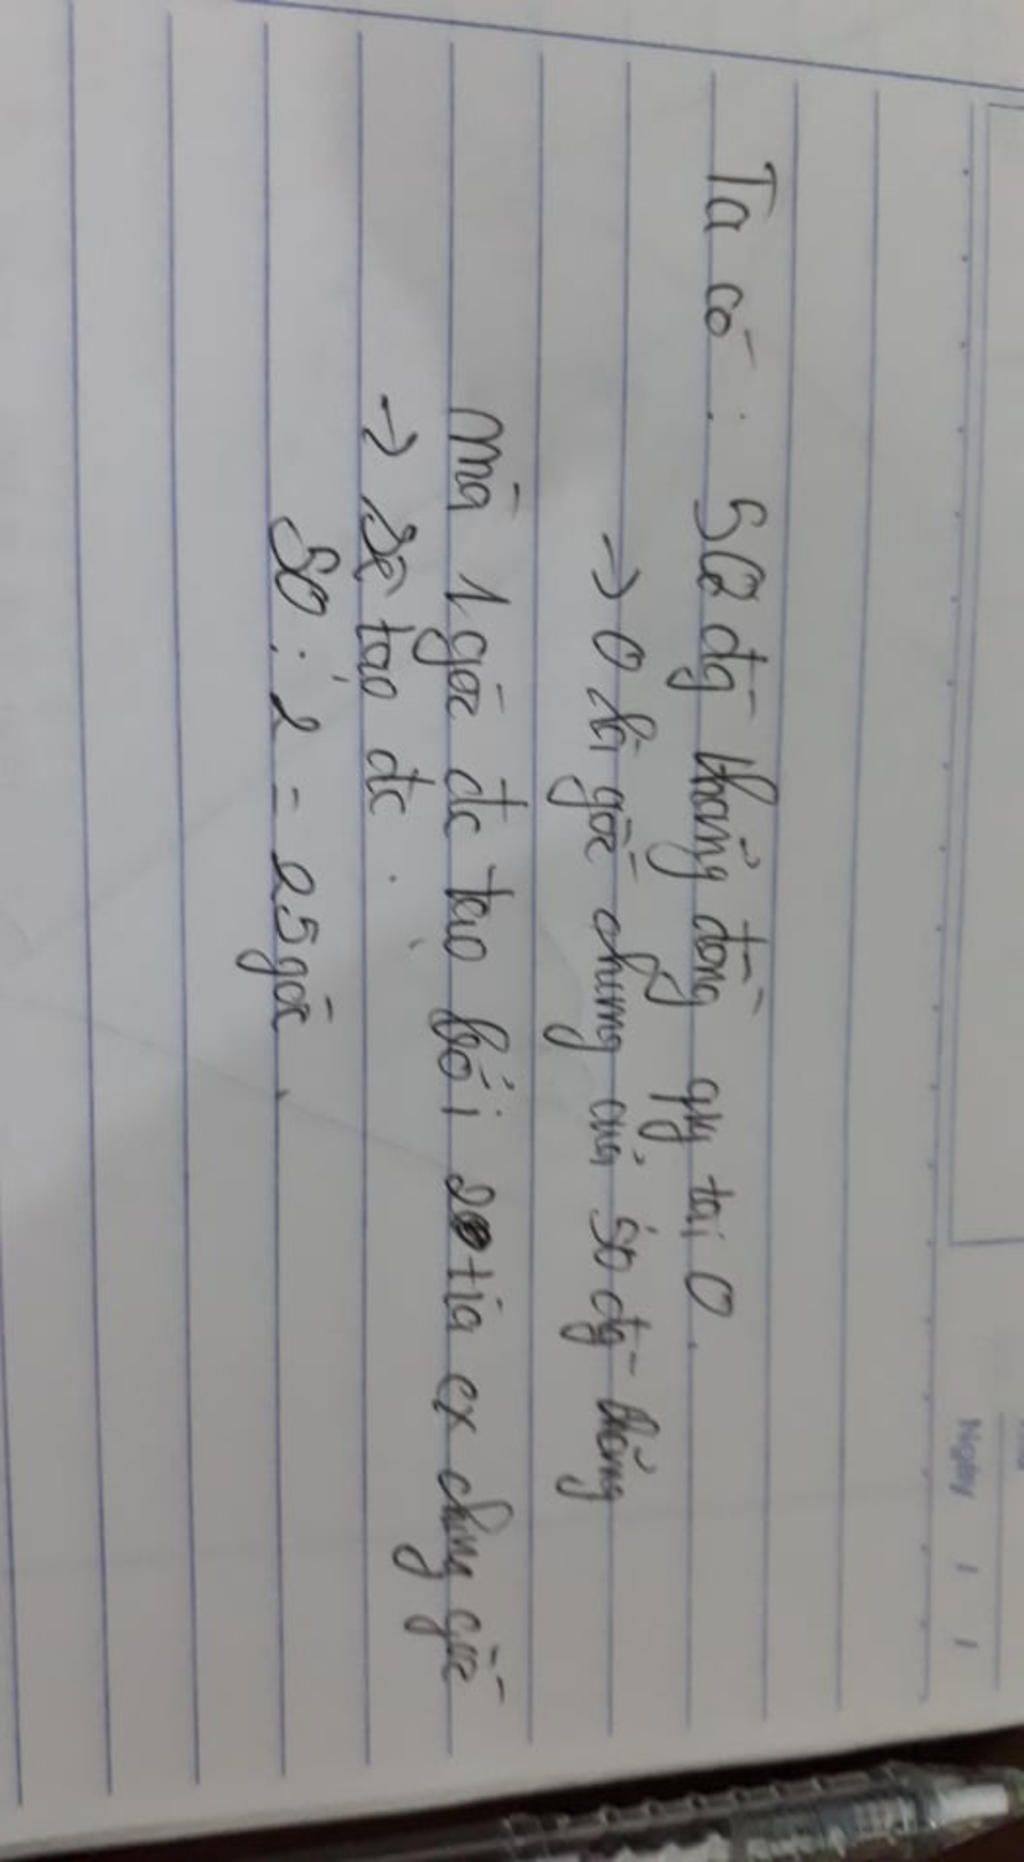 Ngày / /
Ta có : 50 đg thẳng đồng quy tại O.
→ O là gốc chung của 50 đg thẳng
mà 1 góc đc tạo bởi 2 tia cx chung gốc
→ Sẽ tạo đc :
50 : 2 = 25 góc.